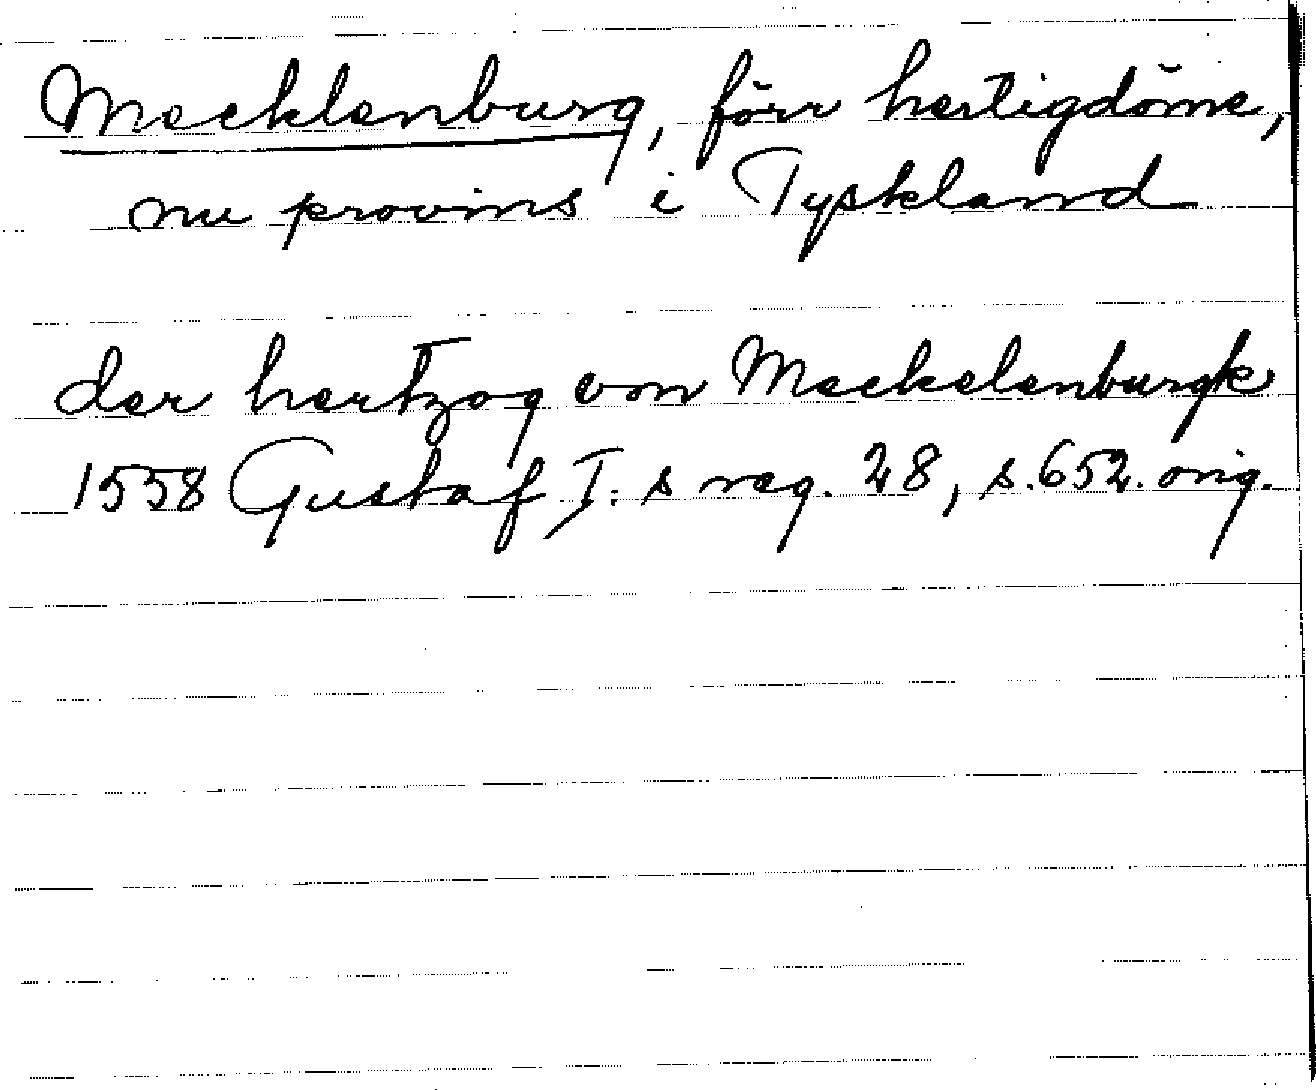 Mecklenburg, förr hertigdöme,
nu provins i Tyskland
der hertzog von Meckelenburgk
1558 Gustaf I:s reg. 28, s. 652. orig.